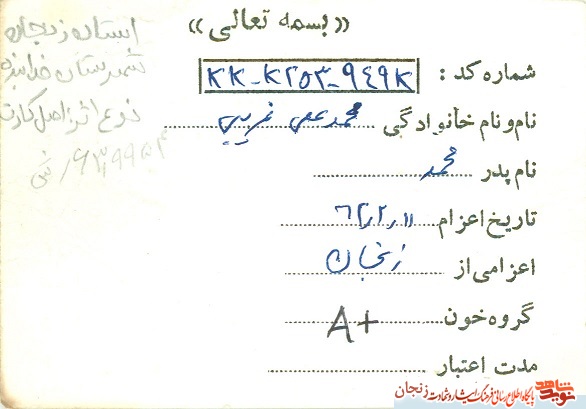 «بسمه تعالی»
شماره کد : KK-K253-949K
نام و نام خانوادگی محمد علی غریبی
نام پدر محمد
تاریخ اعزام ۶۲٫۲٫۱۱
اعزامی از زنجان
گروه خون A+
مدت اعتبار
استان زنجان
شهرستان خدابنده
نوع اثر: اصل کارت
نوید شاهد
پایگاه اطلاع رسانی فرهنگ ایثار و شهادت زنجان